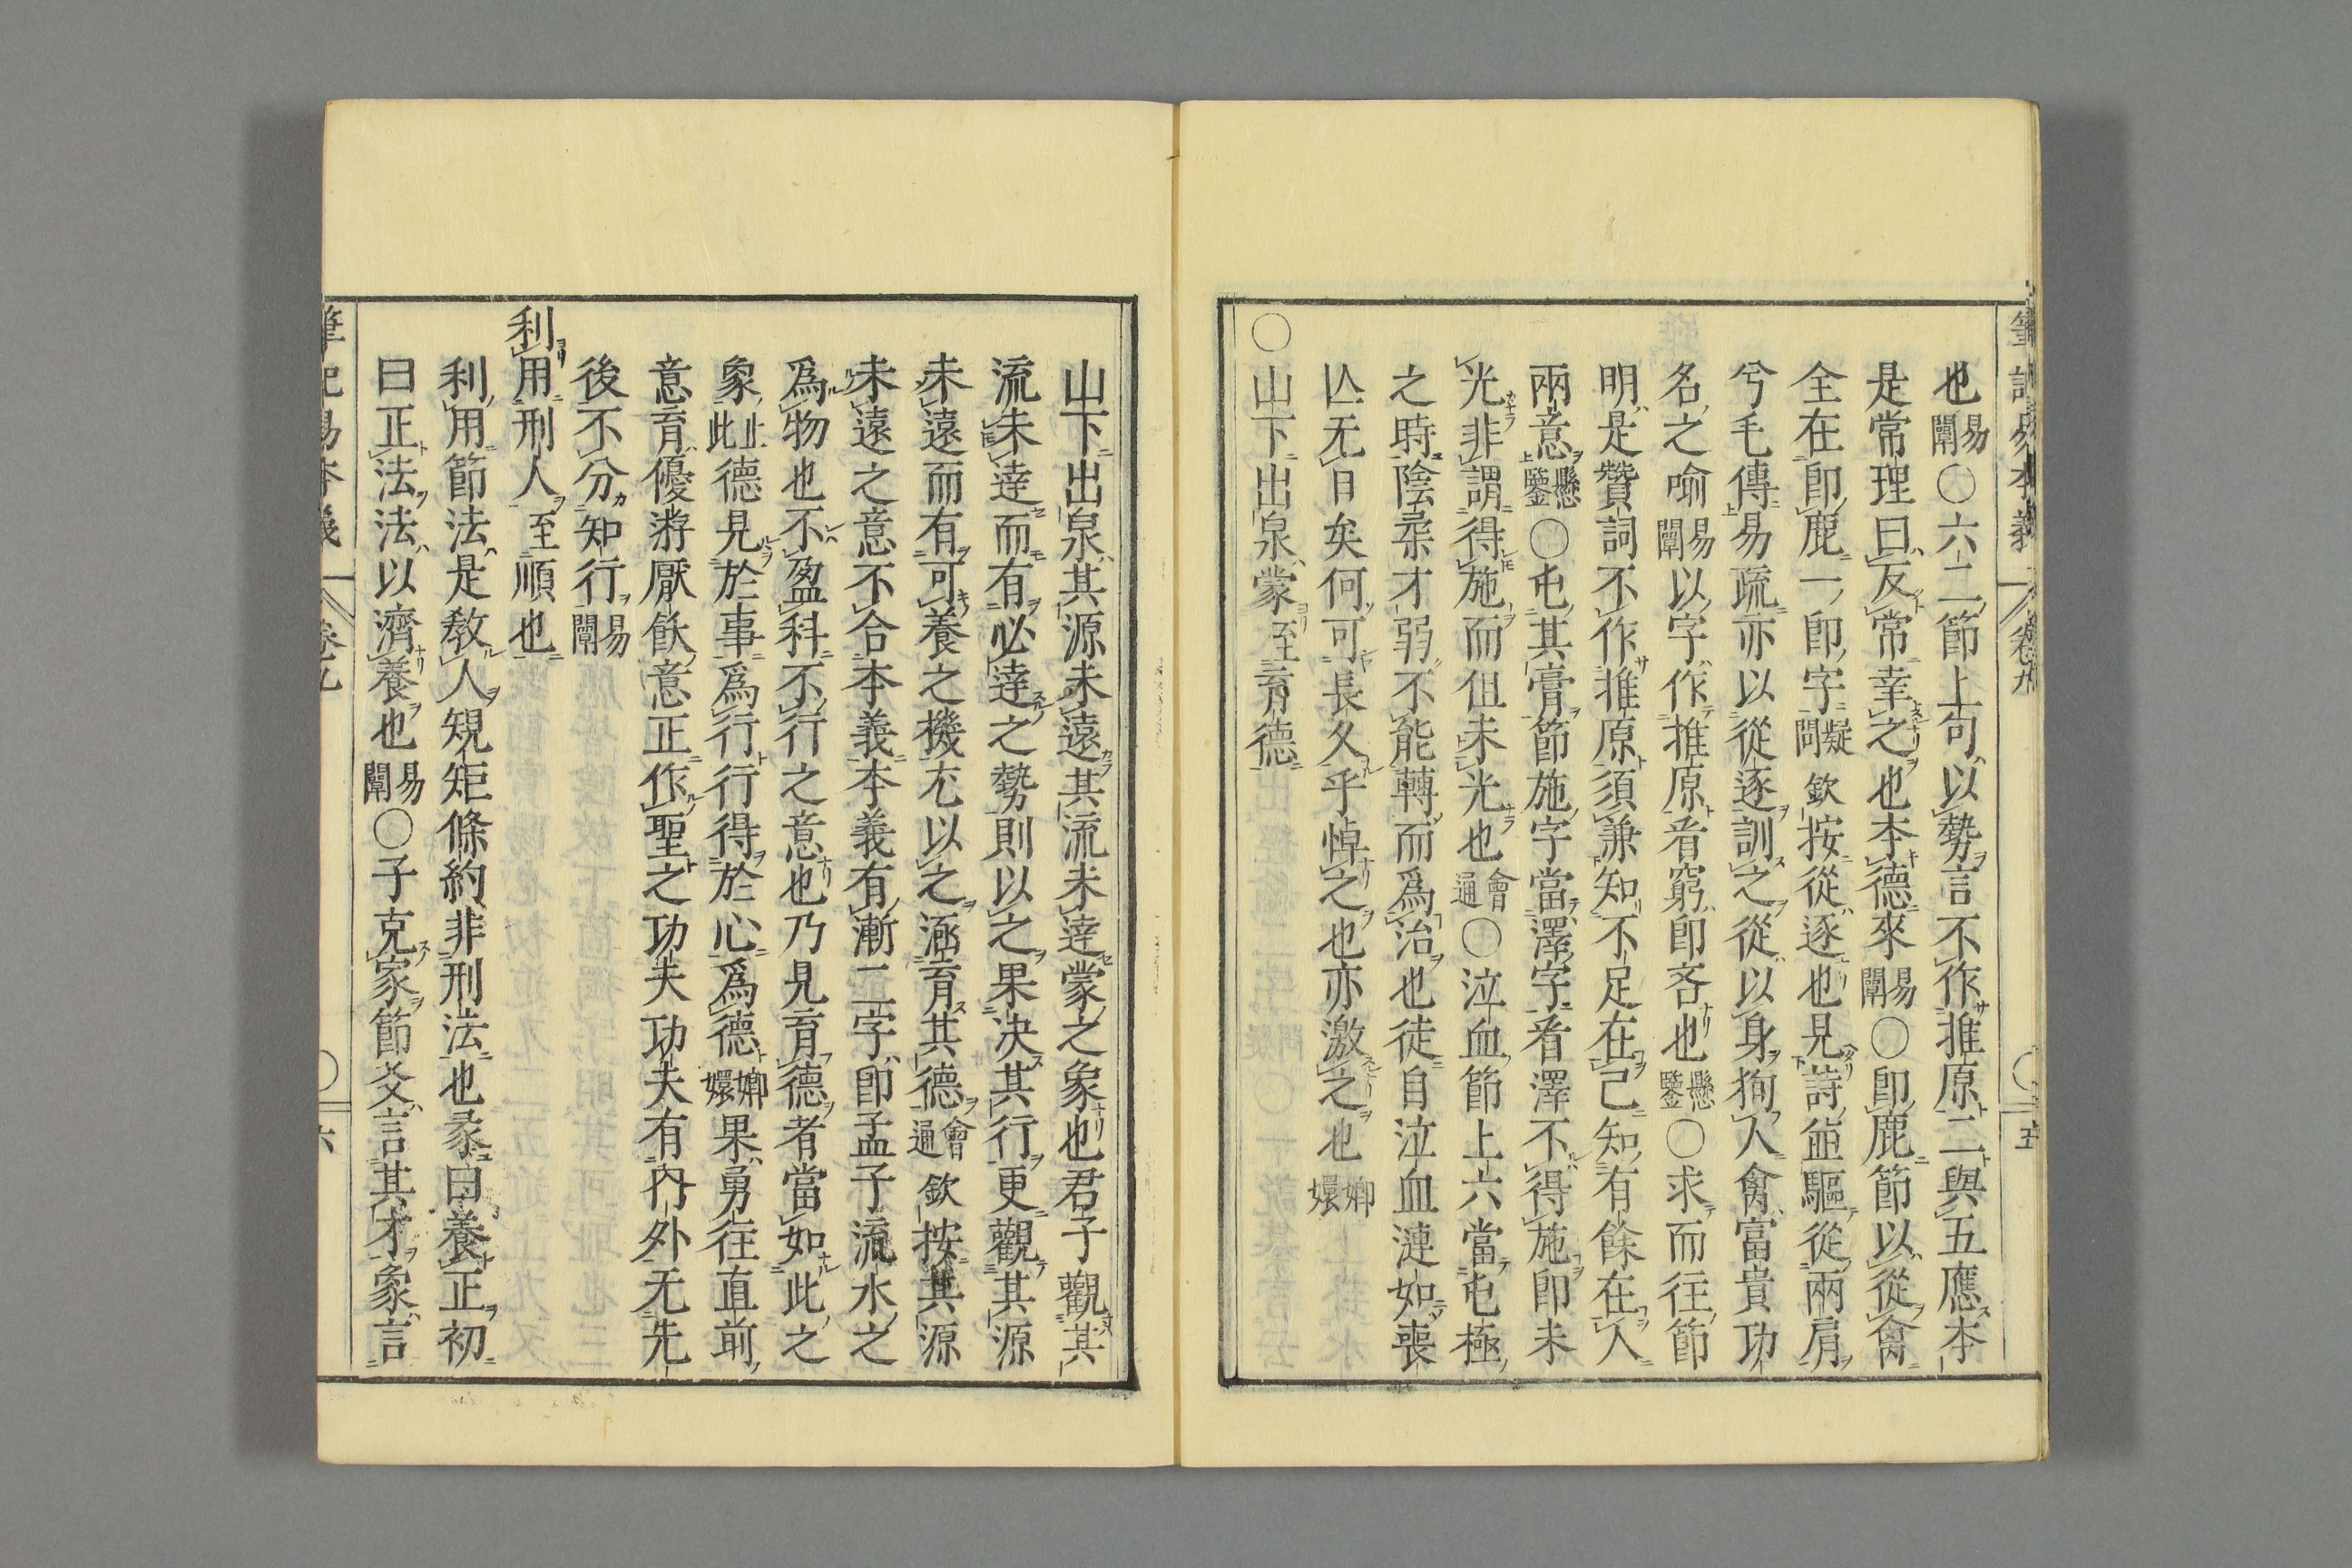 也易闡〇六二節上句以勢言不作推原二與五應本
是常理曰反常幸之也本德來易闡〇即鹿節以從禽
全在即鹿一即字疑問欽按從逐也見詩並驅從兩肩
兮毛傳易疏亦以從逐訓之從以身狥人禽富貴功
名之喻易闡以字作推原看窮即吝也懸鑒〇求而往節
明是贊詞不作推原須兼知不足在己知有餘在人
兩意懸鑒〇屯其膏節施字當澤字看澤不得施即未
光非謂得施而但未光也會通〇泣血節上六當屯極
之時陰柔才弱不能轉而爲治也徒自泣血漣如喪
亾无日矣何可長久乎悼之也亦激之也嫏嬛
〇山下出泉蒙至育德
筆記易本義 卷九 五
山下出泉其源未遠其流未達蒙之象也君子觀其
流未達而有必達之勢則以之果决其行更觀其源
未遠而有可養之機尤以之涵育其德會通欽按其源
未遠之意不合本義本義有漸二字即孟子流水之
爲物也不盈科不行之意也乃見育德者當如此之
象此止德見於事爲行行得於心爲德嫏嬛果勇往直前
意育優游厭飫意正作聖之功夫功夫有內外无先
後不分知行易闡
利用刑人至順也
利用節法是敎人規矩條約非刑法也彖曰養正初
曰正法法以濟養也易闡〇子克家節爻言其才象言
筆記易本義 卷九 六